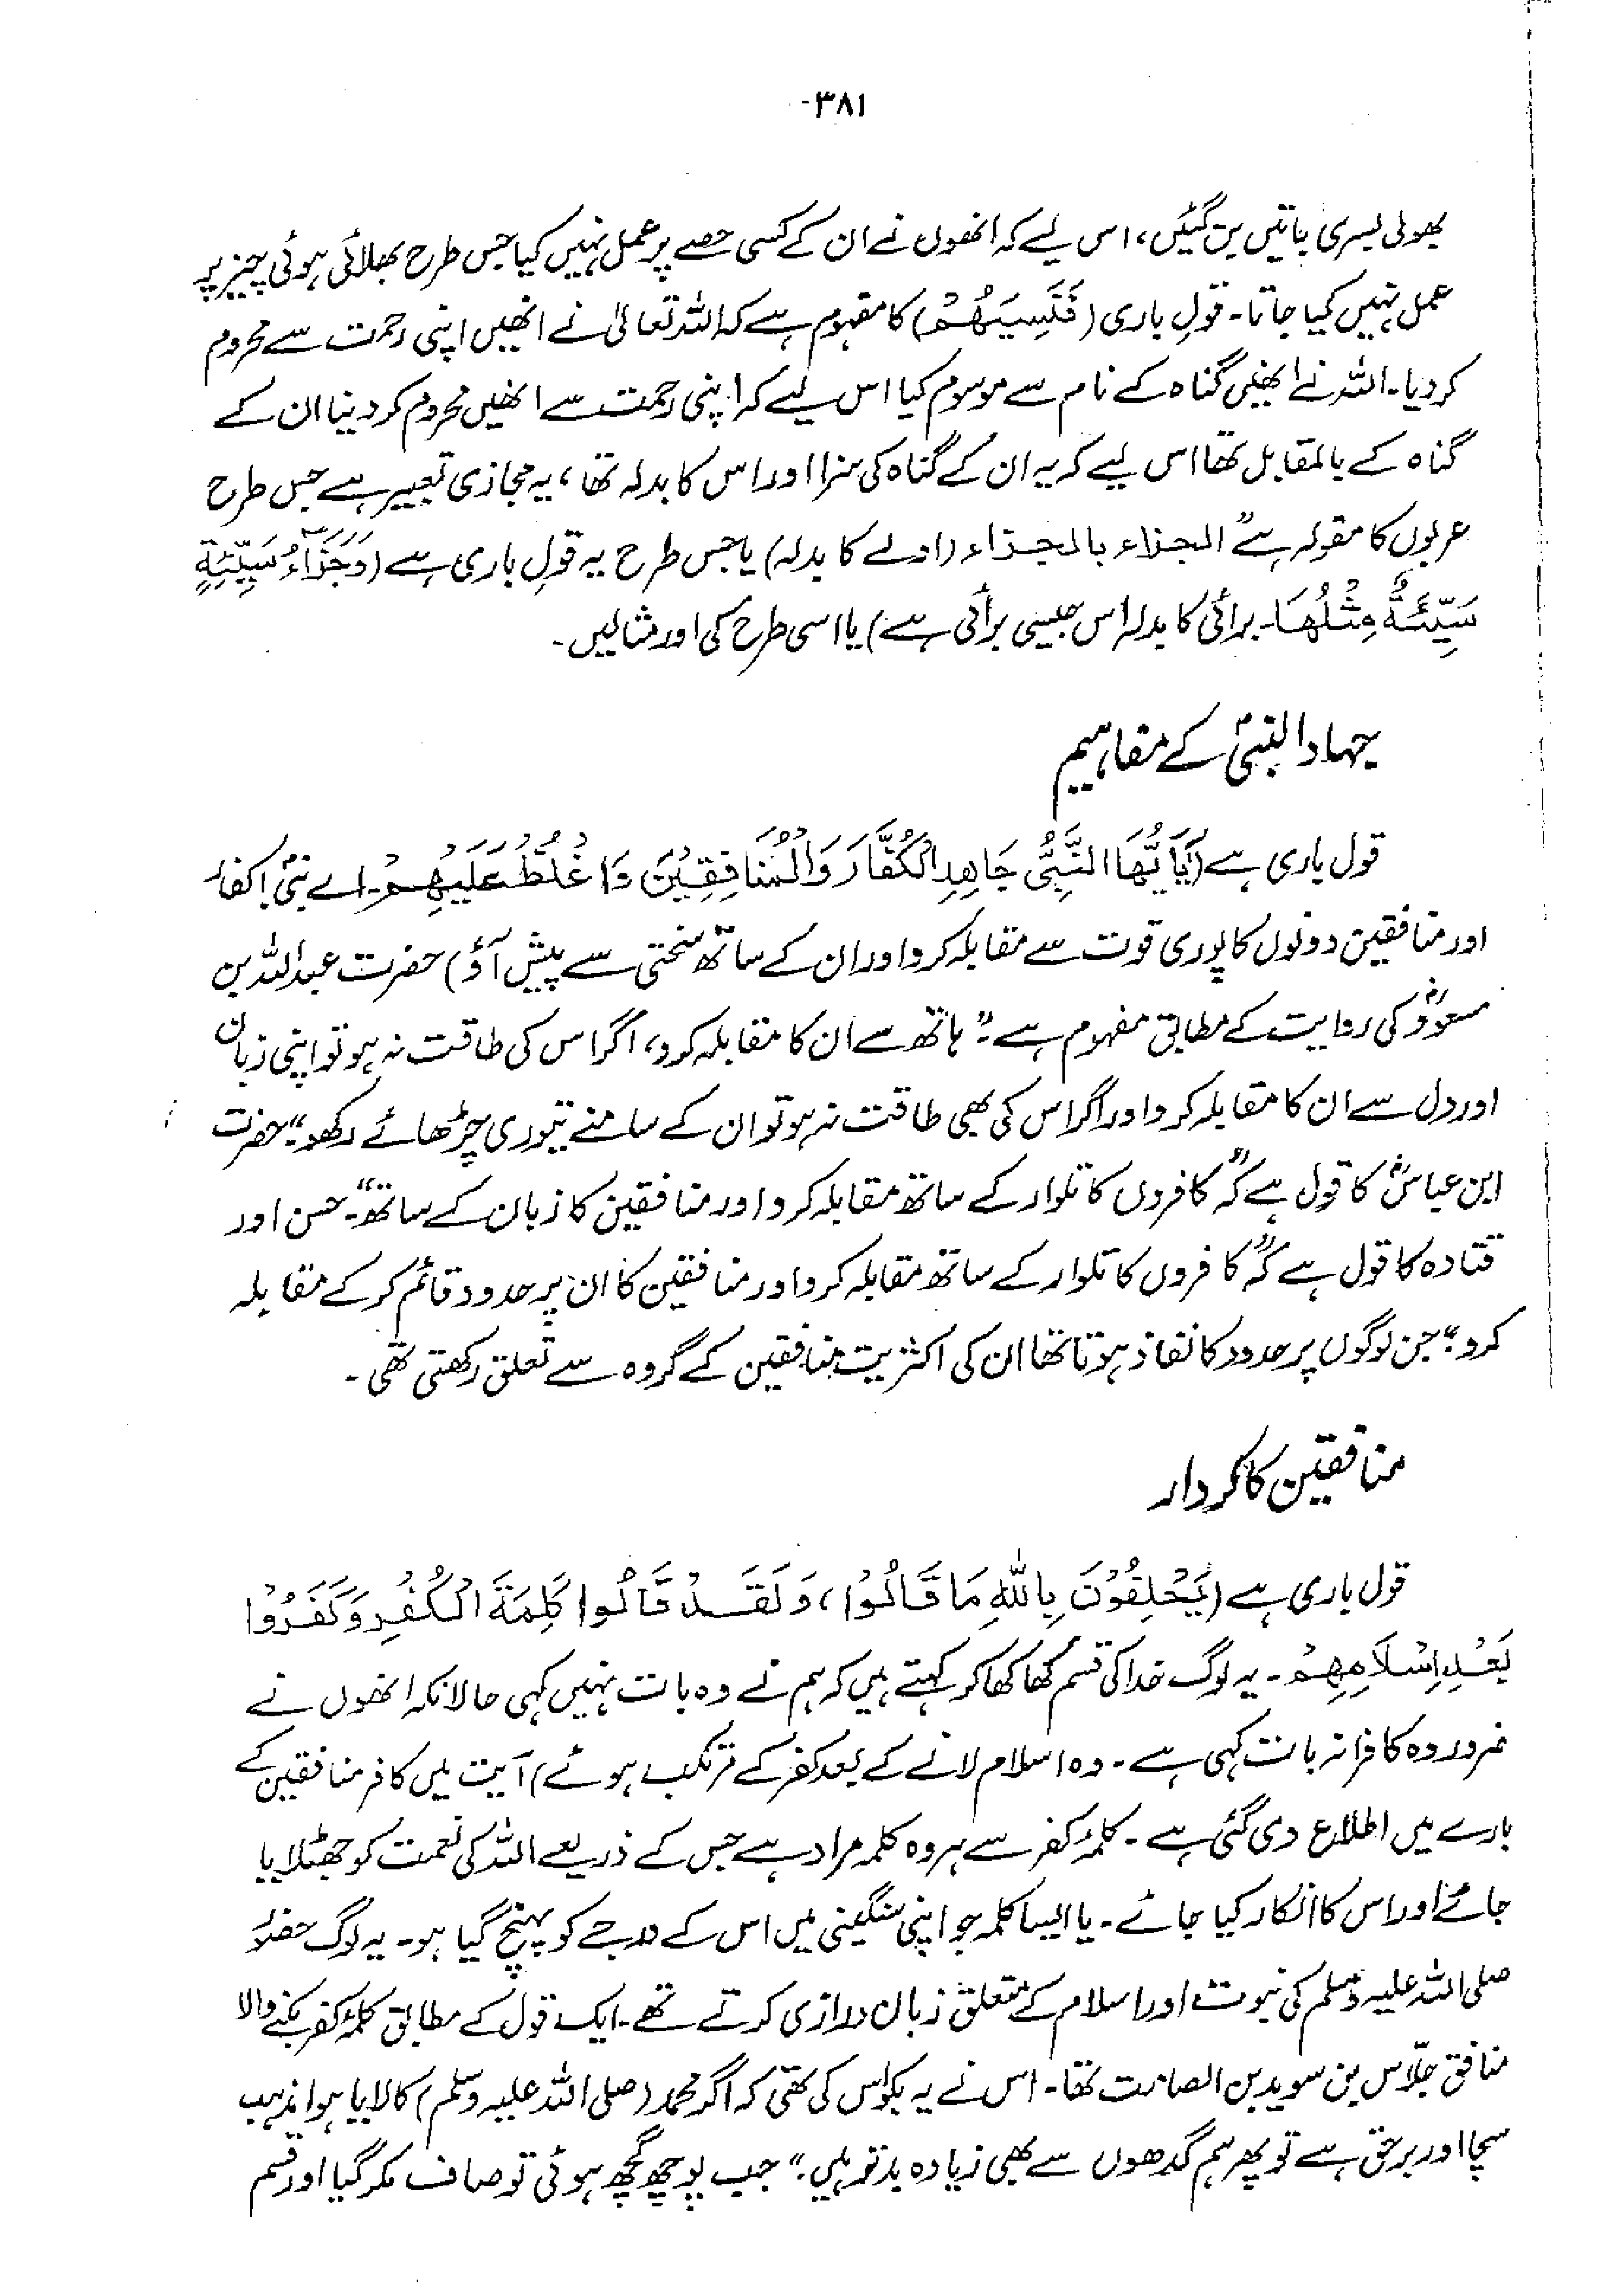 ۳۸۱-
بھولی بسری باتیں بن گئیں، اس لیے کہ انھوں نے ان کے کسی حصے پر عمل نہیں کیا جس طرح بھلائی ہوئی چیز پر
عمل نہیں کیا جاتا۔ قولِ باری (فَنَسِيَهُمْ) کا مفہوم ہے کہ اللہ تعالیٰ نے انھیں اپنی رحمت سے محروم
کر دیا۔ اللہ نے انھیں گناہ کے نام سے موسوم کیا اس لیے کہ اپنی رحمت سے انھیں محروم کر دینا ان کے
گناہ کے بالمقابل تھا اس لیے کہ یہ ان کے گناہ کی سزا اور اس کا بدلہ تھا، یہ مجازی تعبیر ہے جس طرح
عربوں کا مقولہ ہے "الجزاء بالجزاء (ادلے کا بدلہ) یا جس طرح یہ قولِ باری ہے (وَجَزَآءُ سَيِّئَةٍ
سَيِّئَةٌ مِثْلُهَا۔ برائی کا بدلہ اس جیسی برائی ہے) یا اسی طرح کی اور مثالیں۔
جہاد النبیؐ کے مفاہیم
قول باری ہے (يَٰٓأَيُّهَا النَّبِيُّ جَاهِدِ الْكُفَّارَ وَالْمُنَافِقِيْنَ وَاغْلُظْ عَلَيْهِمْ۔ اے نبیؐ! کفار
اور منافقین دونوں کا پوری قوت سے مقابلہ کرو اور ان کے ساتھ سختی سے پیش آؤ) حضرت عبداللہ بن
مسعودؓ کی روایت کے مطابق مفہوم ہے۔" ہاتھ سے ان کا مقابلہ کرو، اگر اس کی طاقت نہ ہو تو اپنی زبان
اور دل سے ان کا مقابلہ کرو اور اگر اس کی بھی طاقت نہ ہو تو ان کے سامنے تیوری چڑھائے رکھو"۔ حضرت
ابن عباسؓ کا قول ہے کہ "کافروں کا تلوار کے ساتھ مقابلہ کرو اور منافقین کا زبان کے ساتھ"۔ حسن اور
قتادہ کا قول ہے کہ "کافروں کا تلوار کے ساتھ مقابلہ کرو اور منافقین کا ان پر حدود قائم کر کے مقابلہ
کرو"۔ جن لوگوں پر حدود کا نفاذ ہوتا تھا ان کی اکثریت منافقین کے گروہ سے تعلق رکھتی تھی۔
منافقین کا کردار
قول باری ہے (يَحْلِفُوْنَ بِاللهِ مَا قَالُوْا، وَلَقَدْ قَالُوا كَلِمَةَ الْكُفْرِ وَكَفَرُوْا
بَعْدَ اِسْلَامِهِمْ۔ یہ لوگ خدا کی قسم کھا کھا کر کہتے ہیں کہ ہم نے وہ بات نہیں کہی حالانکہ انھوں نے
ضرور وہ کافرانہ بات کہی ہے۔ وہ اسلام لانے کے بعد کفر کے مرتکب ہوئے) آیت میں کافر منافقین کے
بارے میں اطلاع دی گئی ہے۔ کلمۂ کفر سے ہر وہ کلمہ مراد ہے جس کے ذریعے اللہ کی نعمت کو جھٹلایا
جائے اور اس کا انکار کیا جائے۔ یا ایسا کلمہ جو اپنی سنگینی میں اس کے درجے کو پہنچ گیا ہو۔ یہ لوگ حضورؐ
صلی اللہ علیہ وسلم کی نبوت اور اسلام کے متعلق زبان درازی کرتے تھے۔ ایک قول کے مطابق کلمۂ کفر بکنے والا
منافق جلّاس بن سوید بن الصامت تھا۔ اس نے یہ بکواس کی تھی کہ اگر محمد (صلی اللہ علیہ وسلم) کا لایا ہوا مذہب
سچا اور برحق ہے تو پھر ہم گدھوں سے بھی زیادہ بدتر ہیں۔" جب پوچھ گچھ ہوئی تو صاف مکر گیا اور قسم